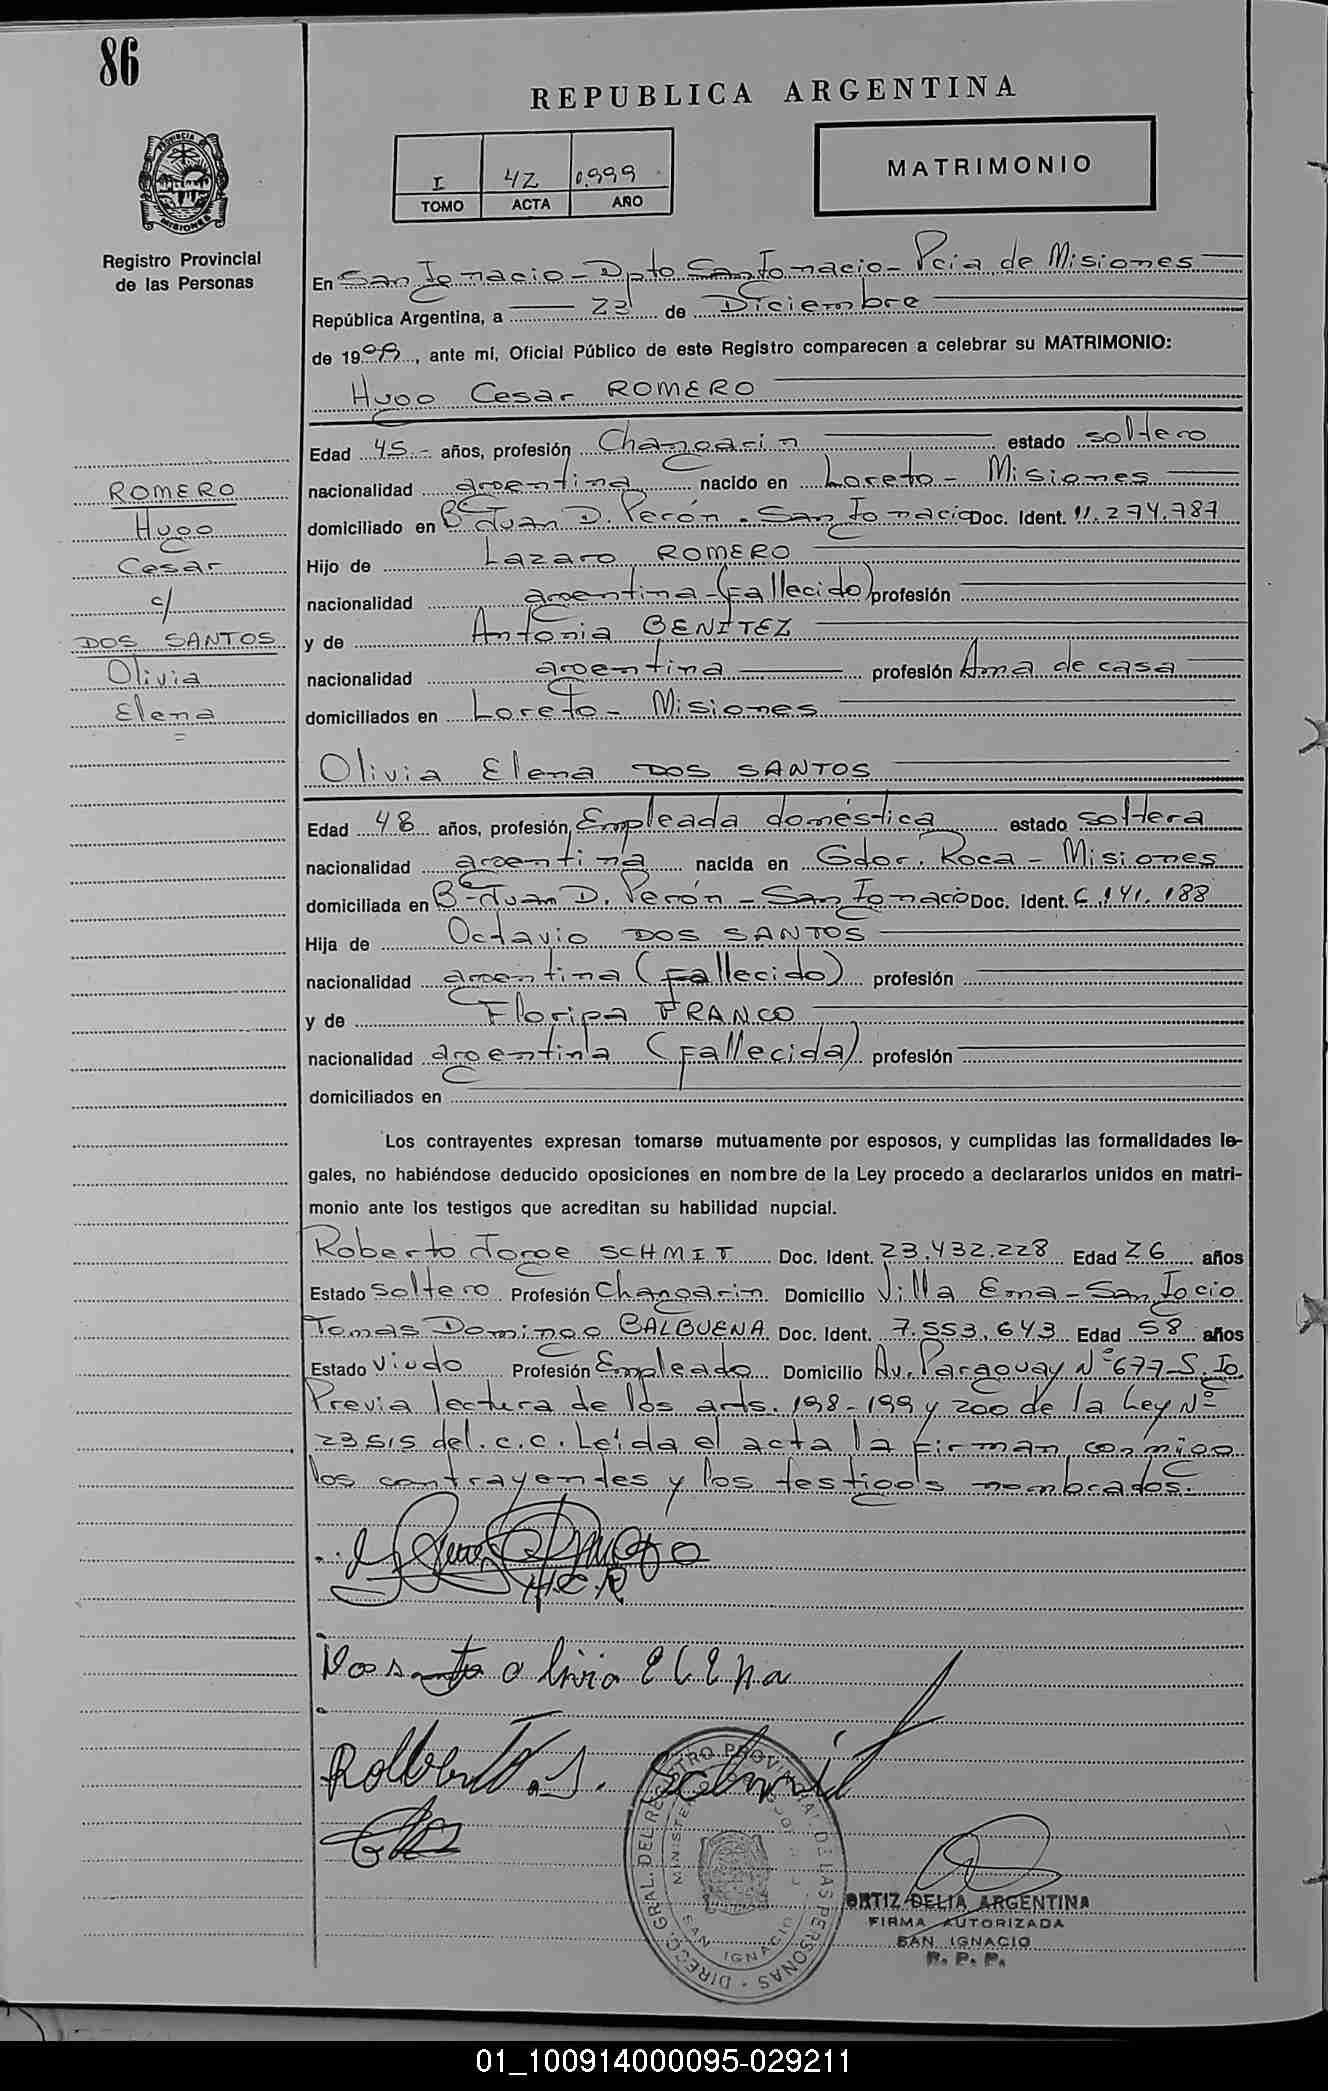 86
REPUBLICA ARGENTINA
I 42 1.999
TOMO ACTA AÑO
MATRIMONIO
PROVINCIA DE MISIONES
Registro Provincial
de las Personas
En San Ignacio - Dpto San Ignacio - Pcia de Misiones
República Argentina, a 23 de Diciembre
de 1999, ante mí, Oficial Público de este Registro comparecen a celebrar su MATRIMONIO:
Hugo Cesar ROMERO
Edad 45.- años, profesión Changarin estado soltero
nacionalidad argentina nacido en Loreto - Misiones
domiciliado en B° Juan D. Perón - San Ignacio Doc. Ident. 11.274.787
Hijo de Lazaro ROMERO
nacionalidad argentina - (fallecido) profesión
y de Antonia BENITEZ
nacionalidad argentina profesión Ama de casa
domiciliados en Loreto - Misiones
ROMERO
Hugo
Cesar
c/
DOS SANTOS
Olivia
Elena
Olivia Elena DOS SANTOS
Edad 48 años, profesión, Empleada doméstica estado soltera
nacionalidad argentina nacida en Gdor. Roca - Misiones
domiciliada en B° Juan D. Perón - San Ignacio Doc. Ident. 6.141.188
Hija de Octavio DOS SANTOS
nacionalidad argentina (Fallecido) profesión
y de Floripa FRANCO
nacionalidad argentina (Fallecida) profesión
domiciliados en
Los contrayentes expresan tomarse mutuamente por esposos, y cumplidas las formalidades le-
gales, no habiéndose deducido oposiciones en nombre de la Ley procedo a declararlos unidos en matri-
monio ante los testigos que acreditan su habilidad nupcial.
Roberto Jorge SCHMIT Doc. Ident. 23.432.228 Edad 26 años
Estado soltero Profesión Changarin Domicilio Villa Ema - San Igcio
Tomas Domingo BALBUENA Doc. Ident. 7.553.643 Edad 58 años
Estado viudo Profesión Empleado Domicilio Av. Paraguay N° 677 - S. Ig.
Previa lectura de los arts. 198 - 199 y 200 de la Ley N°
23515 del. c.c. Leida el acta la firman conmigo
los contrayentes y los testigos nombrados.
H.C.R
Dos santo olivia ELEna
Rolberto. J. Schmit
DIRECC. GRAL. DEL REGISTRO PROVINCIAL DE LAS PERSONAS
SAN IGNACIO
ORTIZ DELIA ARGENTINA
FIRMA AUTORIZADA
SAN IGNACIO
R. P. P.
01_100914000095-029211